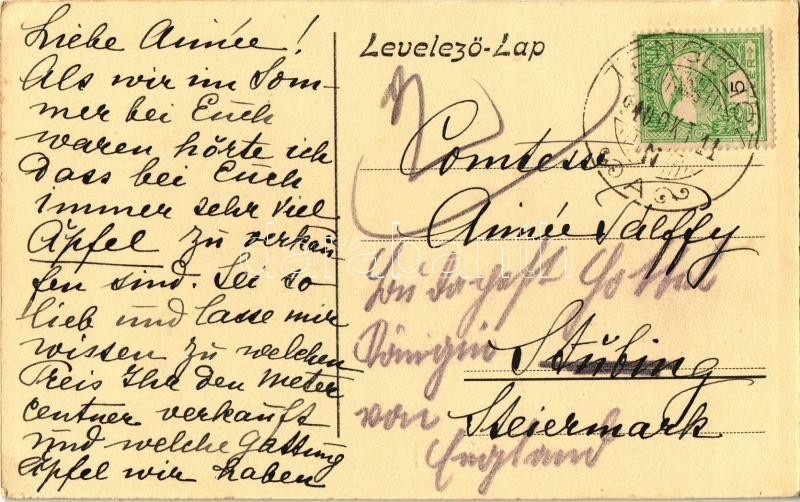 Liebe Aimée!
Als wir im Som-
mer bei Euch
waren hörte ich
dass bei Euch
immer sehr viel
Äpfel zu verkau-
fen sind. Sei so
lieb und lasse mir
wissen zu welchen
Preis Ihr den Meter
centner verkauft
und welche Gattung
Äpfel wir haben
Levelező-Lap
Comtesse
Aimée Pálffy
Stübing
Steiermark
Königin
von
England